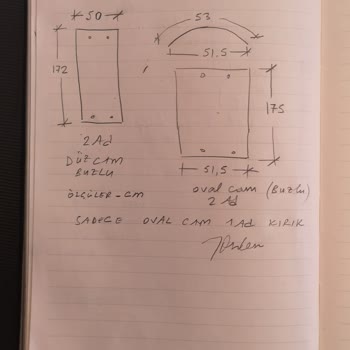 50
53
51.5
172
175
51,5
2 Ad
DÜZ CAM
BUZLU
ÖLÇÜLER - CM
OVAL CAM (BUZLU)
2 Ad
SADECE OVAL CAM 1 Ad KIRIK